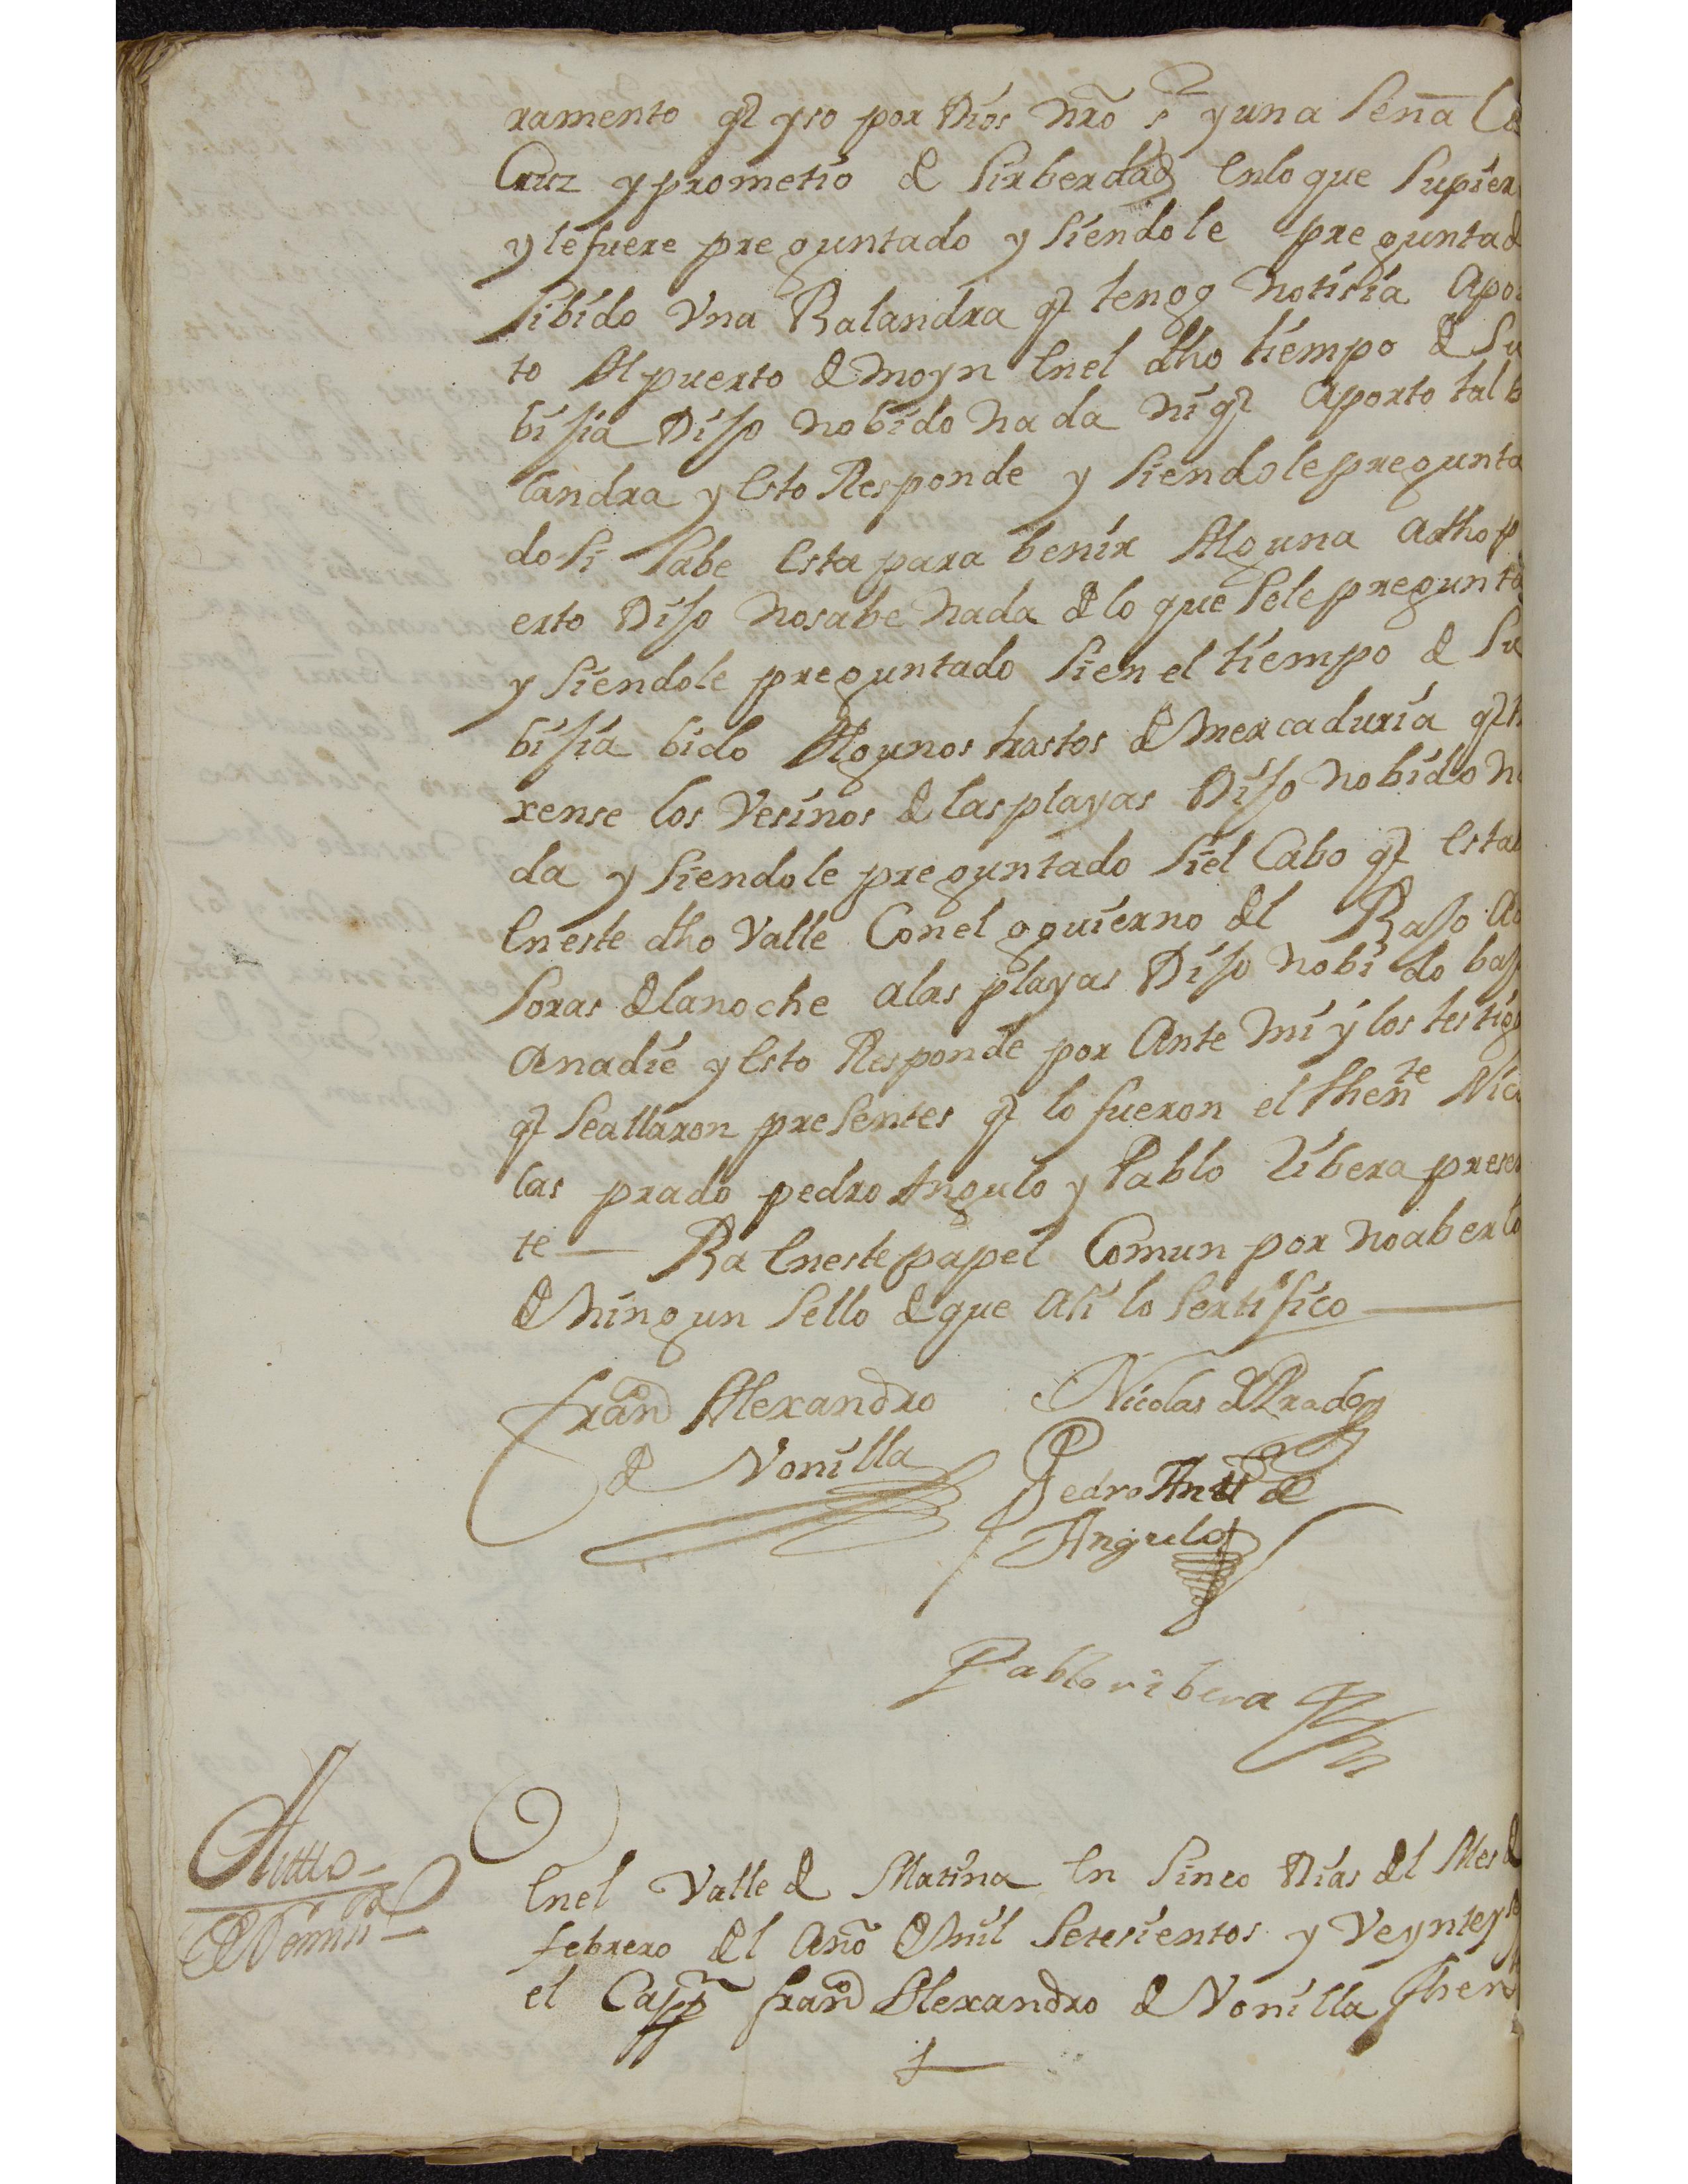 ramento q̃ yso por Dios nr̃o s.r y una Señã
Cruz y prometio de Sirberdad En lo que Supier
y le fuere preguntado y Siendole preguntad
Sibido Vna Balandra q̃ tengo notisia Apor
to Al puerto de moyn En el dho tiempo de Su
bijia Dijo no bido nada ni q̃ Aporto tal b
landra y Esto Responde y Siendole pregunta
do Si Sabe Esta para benir Alguna a dho p
erto Dijo no sabe nada de lo que Sele pregunta
y Siendole preguntado Si en el tiempo de Su
bijia bido Algunos trastos de mercaduria q̃
xense los Vesinos de las playas Dijo no bido n
da y Siendole preguntado Si el Cabo q̃ Estab
En este dho Valle Con el gouierno del Bajo A
Soras de la noche a las playas Dijo no bido baj
A nadie y Esto Responde por Ante mi y los testig
q̃ Se allaron presentes q̃ lo fueron el thente Nico
las prado pedro Angulo y Pablo libera presen
te — Ba En este papel Comun por no aberlo
de ningun Sello de que asi lo Sertifico
franco Alexandro
de Vonilla
Nicolas de Prado
Pedro Antt de
Angulo
Pablo ribera
Autto
En el Valle de Matina En Sinco Dias del Mes de
febrero del Año de mil Setesientos y Veynte y
el Capp.n franco Alexandro de Vonilla thent